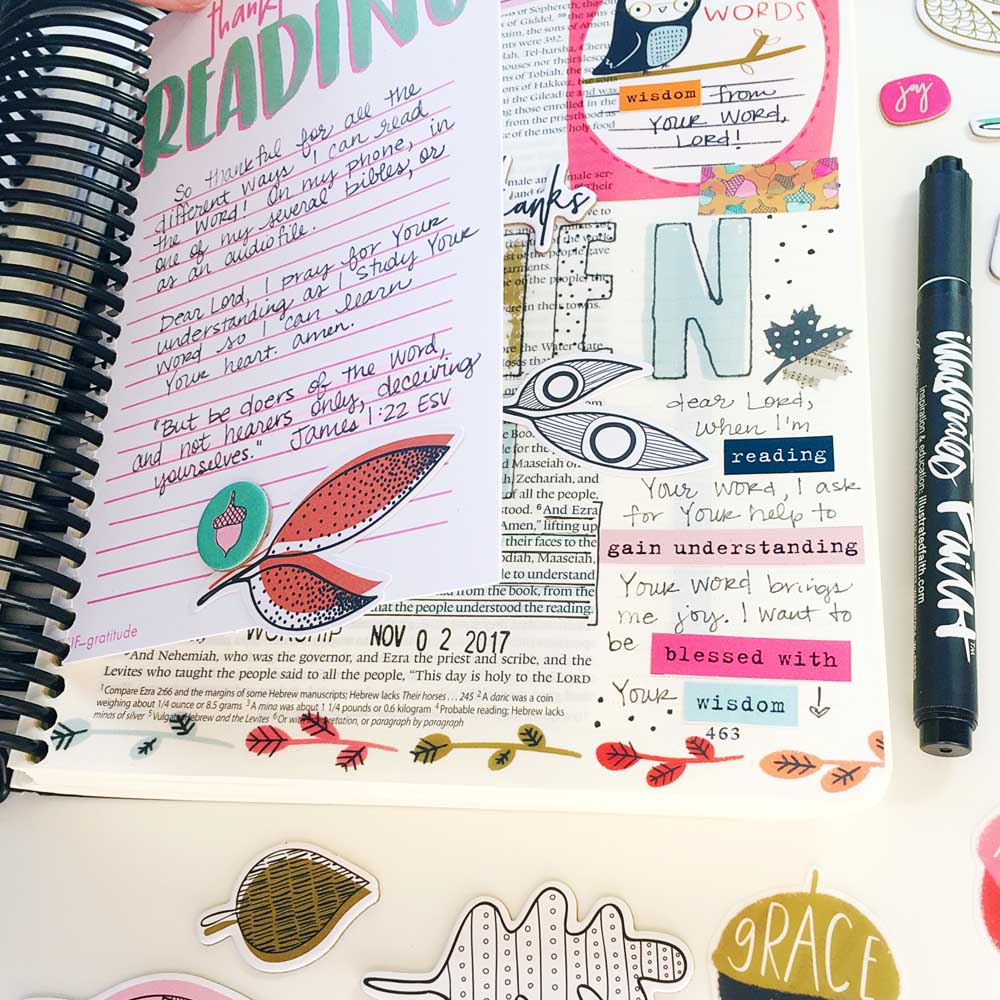 thank
READING
So thankful for all the
different ways I can read
the Word! On my phone, in
one of my several bibles, or
as an audio file.
Dear Lord, I pray for Your
understanding as I study Your
word so I can learn
Your heart. amen.
"But be doers of the Word,
and not hearers only, deceiving
yourselves." James 1:22 ESV
IF_gratitude
of Giddel,
the sons of Amon.
392.
Tel-harsha, Cheru
houses nor their
of Tobiah, the
of Hakkoz, the sons
the Gileadite and was
those enrolled in the
from the priesthood as
of the most holy food
WORDS
wisdom from
Your Word,
Lord!
joy
thanks
EN
dear Lord,
when I'm
reading
Your word, I ask
for Your help to
gain understanding
Your word brings
me joy. I want to
be blessed with
Your wisdom
463
people gave
of the people,
were in their towns.
the Water Gate.
Maaseiah
Zechariah, and
of all the people,
stood. 6And Ezra
Amen," lifting up
their faces to the
Maaseiah,
to understand
from the book, from the
that the people understood the reading.
WORSHIP NOV 02 2017
And Nehemiah, who was the governor, and Ezra the priest and scribe, and the
Levites who taught the people said to all the people, "This day is holy to the LORD
1Compare Ezra 2:66 and the margins of some Hebrew manuscripts; Hebrew lacks Their horses . . . 245 2A daric was a coin
weighing about 1/4 ounce or 8.5 grams 3A mina was about 1 1/4 pounds or 0.6 kilogram 4Probable reading; Hebrew lacks
minas of silver 5Vulgate; Hebrew and the Levites 6Or with interpretation, or paragraph by paragraph
illustrated Faith TM
Inspiration & education: illustratedfaith.com
gRACE